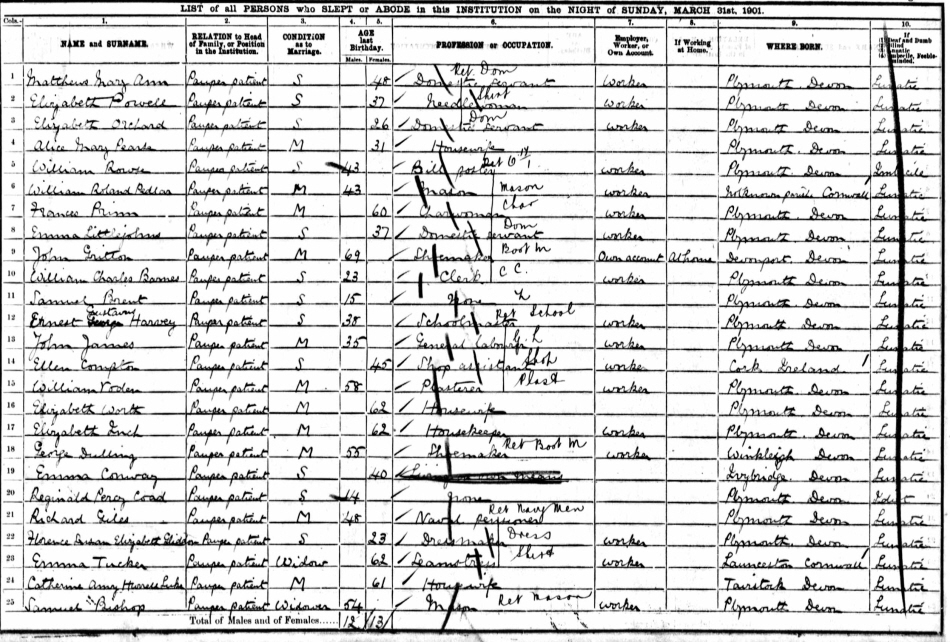 LIST of all PERSONS who SLEPT or ABODE in this INSTITUTION on the NIGHT of SUNDAY, MARCH 31st, 1901.
Cols.— 1. 2. 3. 4. 5. 6. 7. 8. 9. 10.
NAME and SURNAME. RELATION to Head of Family, or Position in the Institution. CONDITION as to Marriage. AGE last Birthday. Males. Females. PROFESSION or OCCUPATION. Employer, Worker, or Own Account. If Working at Home. WHERE BORN. If Deaf and Dumb Blind Lunatic Imbecile, Feeble-minded.
1 Matthews Mary Ann Pauper patient S 48 Domestic Servant Ret Dom worker Plymouth Devon Lunatic
2 Elizabeth Powell Pauper patient S 37 Needlewoman Shirt worker Plymouth Devon Lunatic
3 Elizabeth Orchard Pauper patient S 26 Domestic servant Dom worker Plymouth Devon Lunatic
4 Alice Mary Pearse Pauper patient M 31 Housewife Plymouth Devon Lunatic
5 William Rowse Pauper patient S 43 Bill poster Ret worker Plymouth Devon Imbecile
6 William Roland Pedlar Pauper patient M 43 Mason Mason worker Cornwall Lunatic
7 Frances Prinn Pauper patient M 60 Charwoman Char worker Plymouth Devon Lunatic
8 Emma Littlejohns Pauper patient S 37 Domestic servant Dom worker Plymouth Devon Lunatic
9 John Gritton Pauper patient M 69 Shoemaker Boot M Own account At home Devonport Devon Lunatic
10 William Charles Barnes Pauper patient S 23 Clerk C.C. worker Plymouth Devon Lunatic
11 Samuel Brent Pauper patient S 15 None Plymouth Devon Lunatic
12 Ernest Gustavus Harvey Pauper patient S 38 Schoolmaster Ret School worker Plymouth Devon Lunatic
13 John James Pauper patient M 35 General labourer G L worker Plymouth Devon Lunatic
14 Ellen Compton Pauper patient S 45 Shop assistant worker Cork Ireland Lunatic
15 William Voden Pauper patient M 58 Plasterer Plast worker Plymouth Devon Lunatic
16 Elizabeth Worth Pauper patient M 62 Housewife Plymouth Devon Lunatic
17 Elizabeth Inch Pauper patient M 62 Housekeeper worker Plymouth Devon Lunatic
18 George Dulling Pauper patient M 55 Shoemaker Ret Boot M worker Winkleigh Devon Lunatic
19 Emma Conway Pauper patient S 40 Ivybridge Devon Lunatic
20 Reginald Percy Coad Pauper patient S 14 None Plymouth Devon Idiot
21 Richard Giles Pauper patient M 48 Naval pensioner Ret Navy Men Plymouth Devon Lunatic
22 Florence Susan Elizabeth Pauper patient S 23 Dressmaker Dress worker Plymouth Devon Lunatic
23 Emma Tucker Pauper patient Widow 62 Seamstress Shirt worker Launceston Cornwall Lunatic
24 Catherine Amy Pauper patient M 61 Housewife Tavistock Devon Lunatic
25 Samuel Bishop Pauper patient Widower 54 Mason Ret Mason worker Plymouth Devon Lunatic
Total of Males and of Females...... 12 13